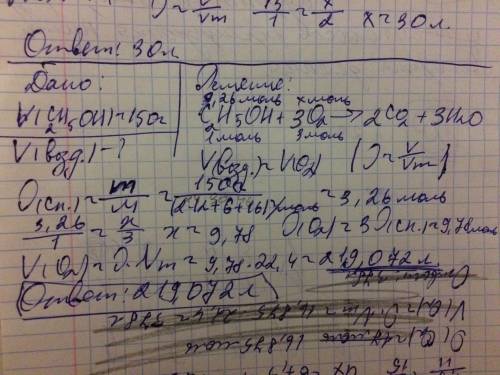 V/Vm 15/1 = x/2 x=30л.
Ответ: 30л
Дано:
V(C2H5OH)=150г
V(возд.)-?
Решение:
3,26 моль x моль
C2H5OH + 3O2 → 2CO2 + 3H2O
1 моль 3 моль
V(возд.)=V(O2) (ϑ=V/Vm)
ϑ(сп.)=m/M = 150г/(2·12+6+16)г/моль = 3,26 моль
3,26/1 = x/3 x=9,78 ϑ(O2)=3ϑ(сп.)=9,78моль
V(O2)=ϑ·Vm=9,78·22,4=219,072л.
Ответ: 219,072л